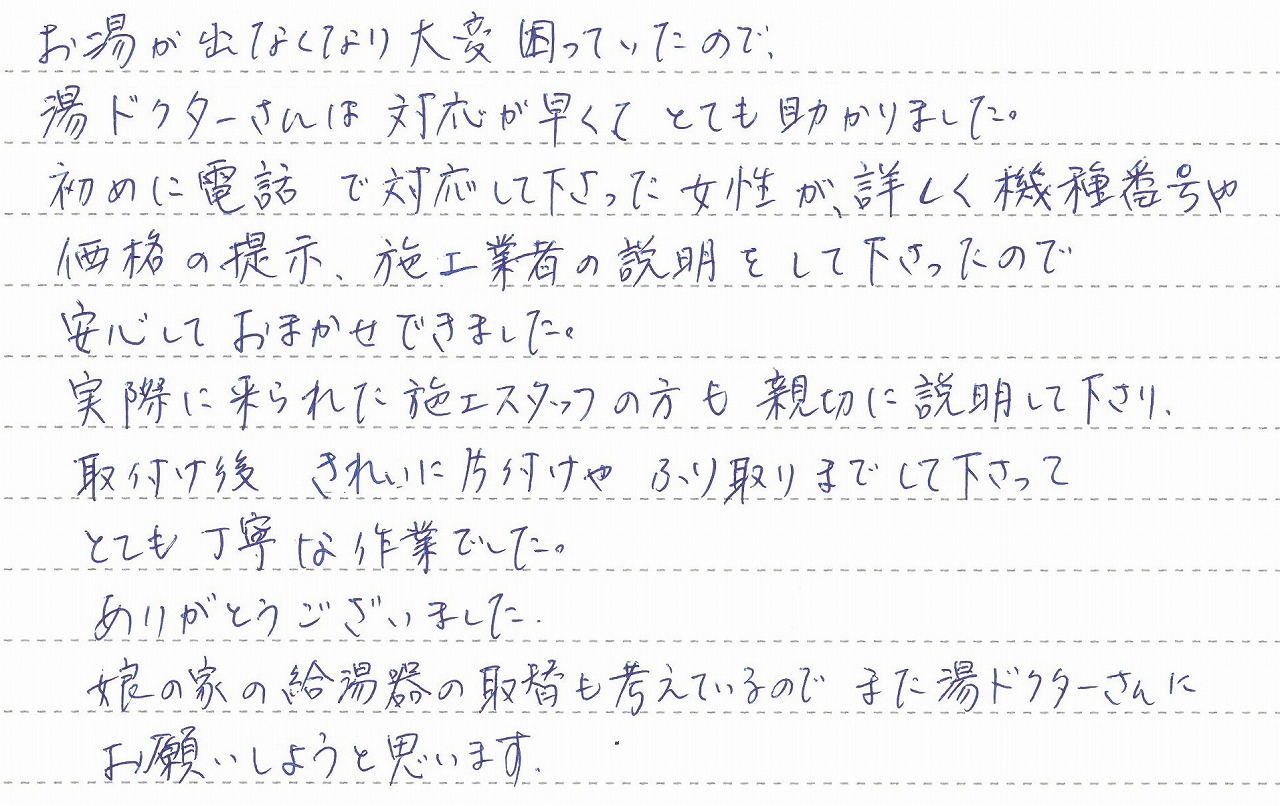 お湯が出なくなり大変困っていたので、
湯ドクターさんは対応が早くてとても助かりました。
初めに電話で対応して下さった女性が、詳しく機種番号や
価格の提示、施工業者の説明をして下さったので
安心しておまかせできました。
実際に来られた施工スタッフの方も親切に説明して下さり、
取付け後 きれいに片付けやふり取りまでして下さって
とても丁寧な作業でした。
ありがとうございました.
娘の家の給湯器の取替も考えているのでまた湯ドクターさんに
お願いしようと思います.